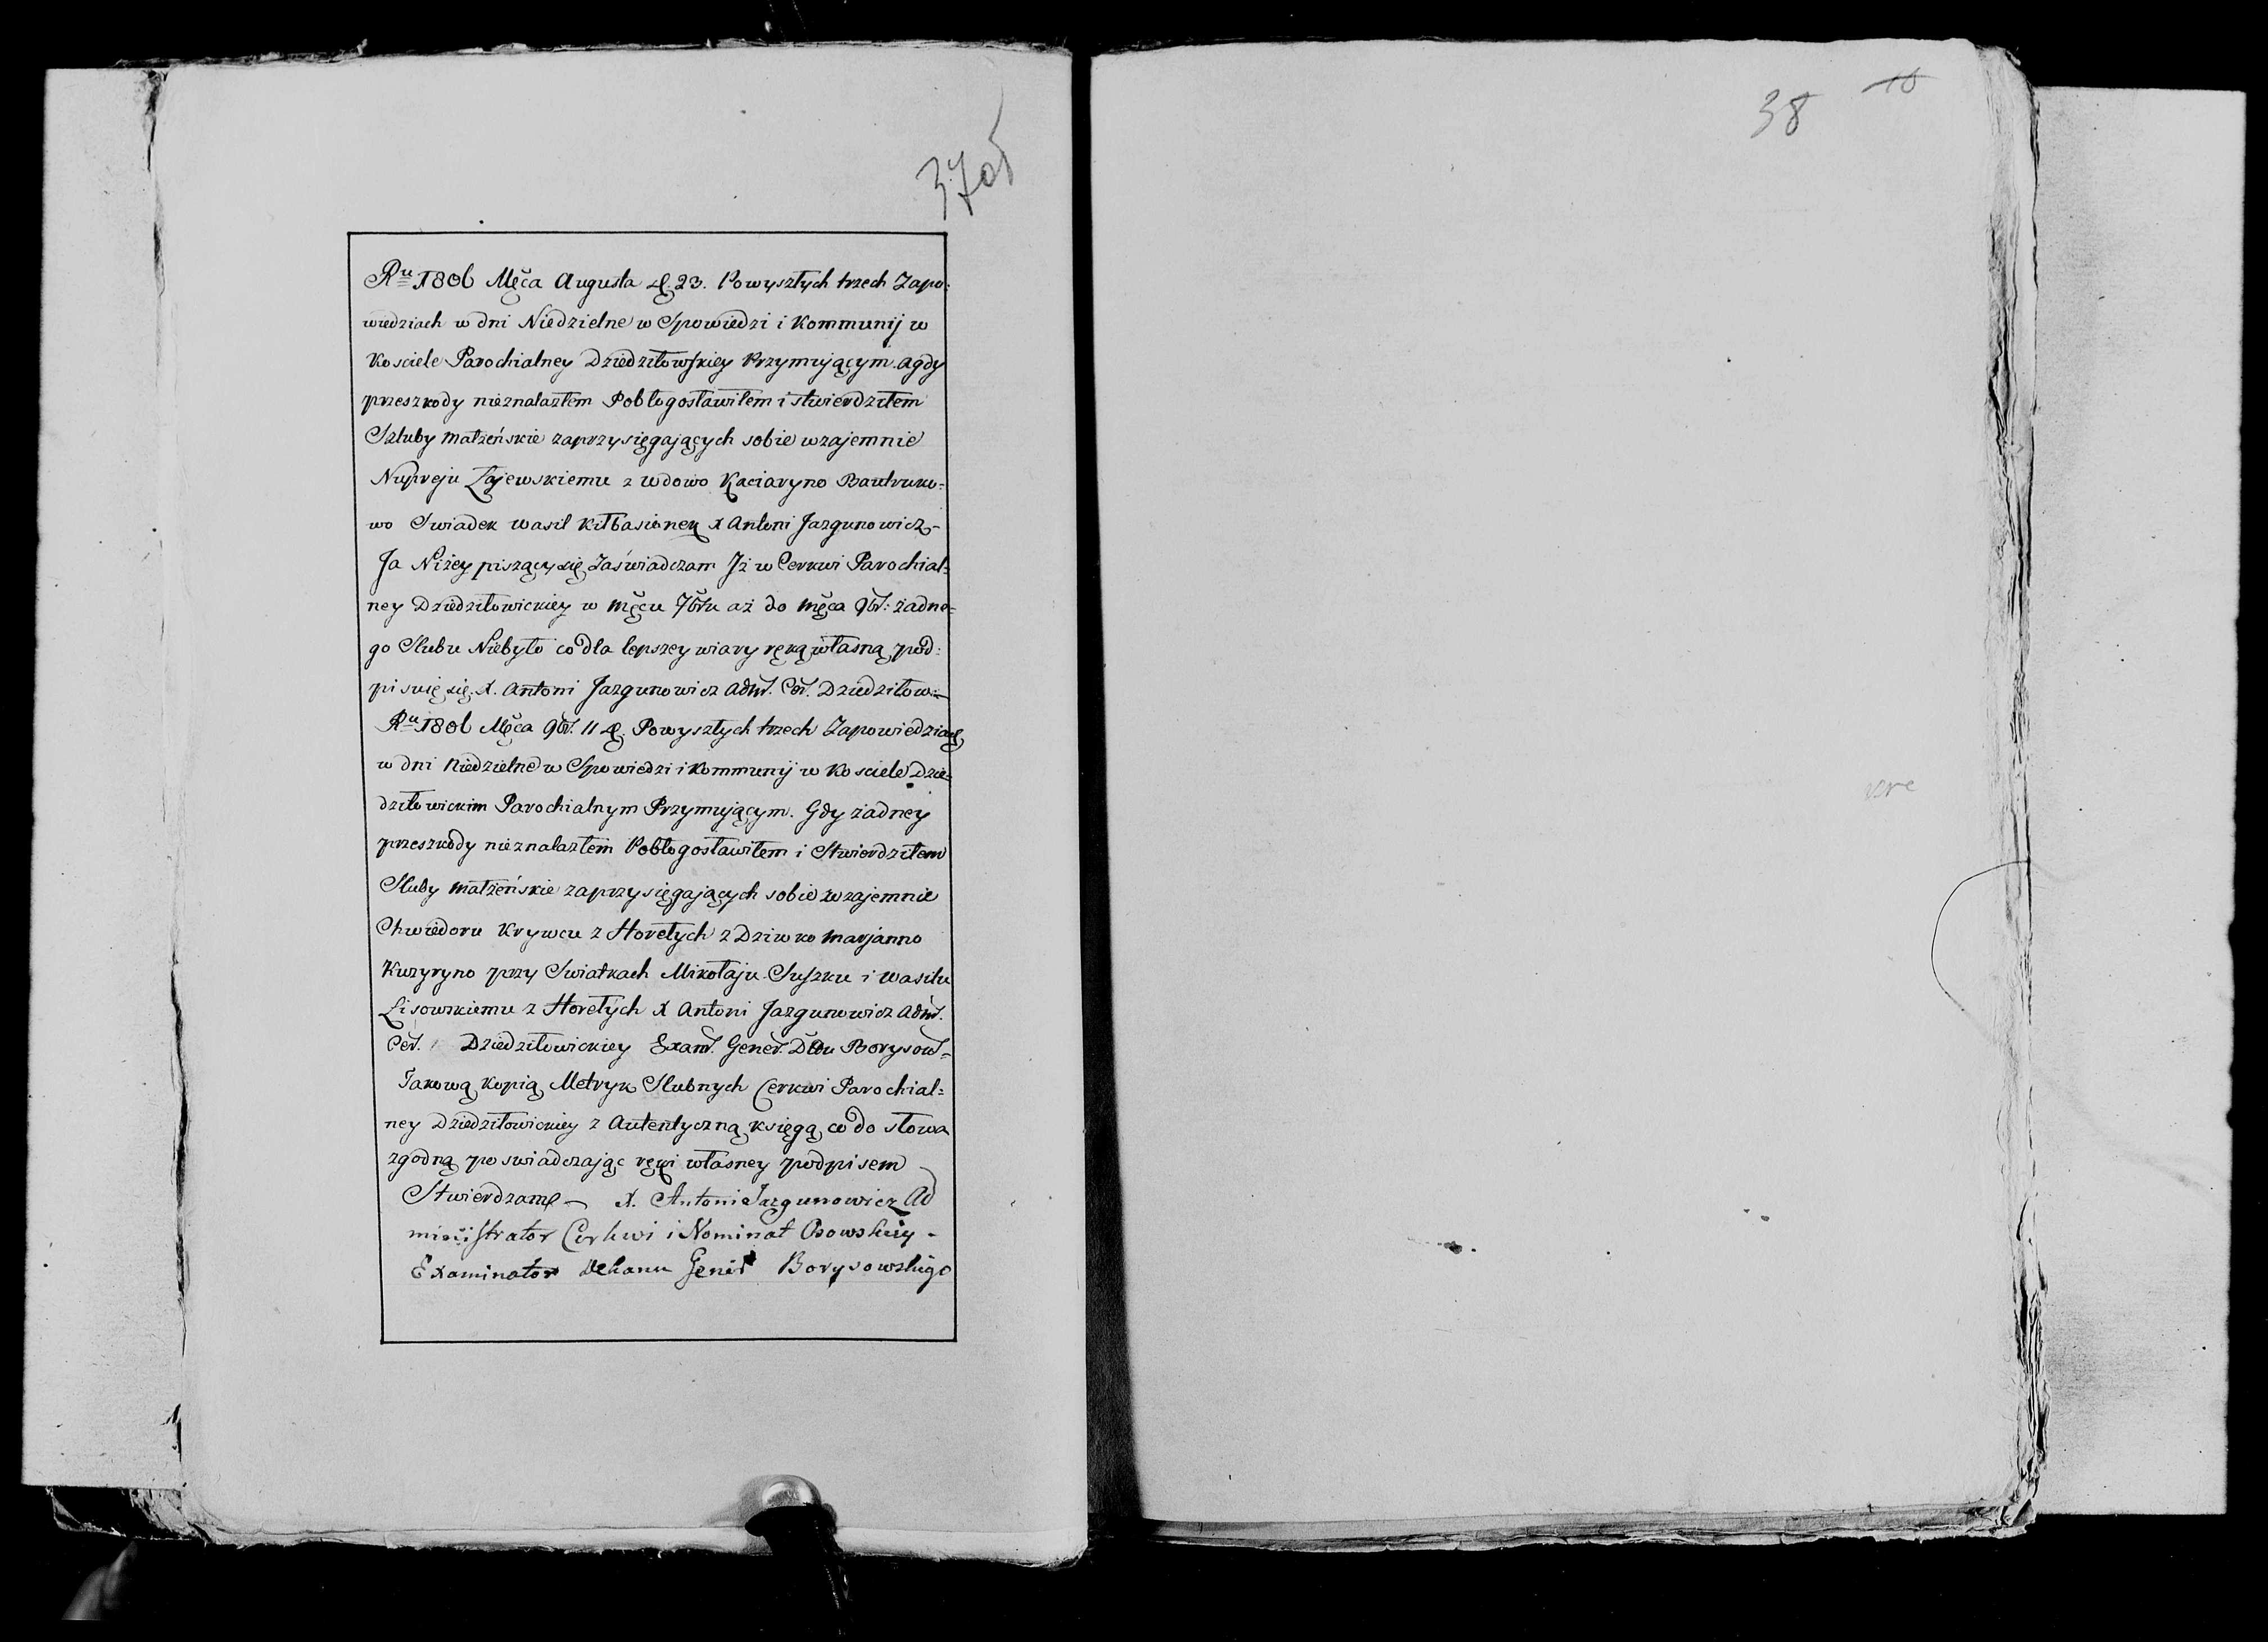 37об
Ru 1806 Męca Augusta d. 23. Powyszłych trzech Zapo:
wiedziach w dni Niedzielne w Spowiedzi i Kommunij w
Kosciele Parochialney Dziedziłowskiey Przymującym. a gdy
przeszkody nieznalazłem Pobłogosławiłem i stwierdziłem
Szluby małżeńskie zaprzysięgających sobie wzajemnie
Nupreju Zajewskiemu z wdowo Kaciaryno Bautruko=
wo Swiadek Wasil Kiłbasionek X Antoni Jazgunowicz -
Ja Niżey piszący się Zaświadczam Jż w Cerkwi Parochial=
ney Dziedziłowickiey w Męcu 7bru aż do Męca 9br: żadne=
go Slubu Niebyło co dla lepszey wiary ręką własną pod:
pisuię się. X. Antoni Jazgunowicz Adm. Cer. Dziedziłow:
Ru 1806 Męca 9br. 11 d. Powyszłych trzech Zapowiedziach
w dni Niedzielne w Spowiedzi i Kommunij w Kosciele Dzie=
dziłowickim Parochialnym Przymującym. Gdy żadney
przeszkody nieznalazłem Pobłogosławiłem i Stwierdziłem
Sluby małżeńskie zaprzysięgających sobie wzajemnie
Chwiedoru Krywcu z Horełych z Dziwko Marjanno
Kuzyryno przy Swiatkach Mikołaju Suszku i Wasilu
Lisowskiemu z Horełych X Antoni Jazgunowicz Adm.
Cer. Dziedziłowickiey Exam. Gener. Dktu Borysow=
Takową kopią Metryk Slubnych Cerkwi Parochial=
ney Dziedziłowickiey z Autentyczną księgą co do słowa
zgodną poswiadczając ręki własney podpisem
Stwierdzam - X. Antoni Jazgunowicz Ad
ministrator Cerkwi i Nominat Osowskiey -
Examinator Dekanu Gener Borysowskigo
38